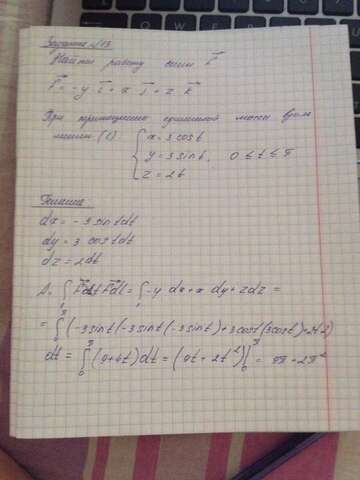 Задание №13
Найти работу силы F
F = -y i + x j + z k
При перемещении единичной массы вдоль
линии (l): { x = 3 cost
y = 3 sint, 0 ≤ t ≤ π
z = 2t
Решение
dx = -3 sint dt
dy = 3 cost dt
dz = 2dt
A = ∫ F dl = ∫ -y dx + x dy + z dz =
= ∫₀^π (-3 sint (-3 sint (-3 sint) + 3 cost (3 cost) + 2t·2)
dt = ∫₀^π (9+4t) dt = (9t + 2t²)|₀^π = 9π + 2π²